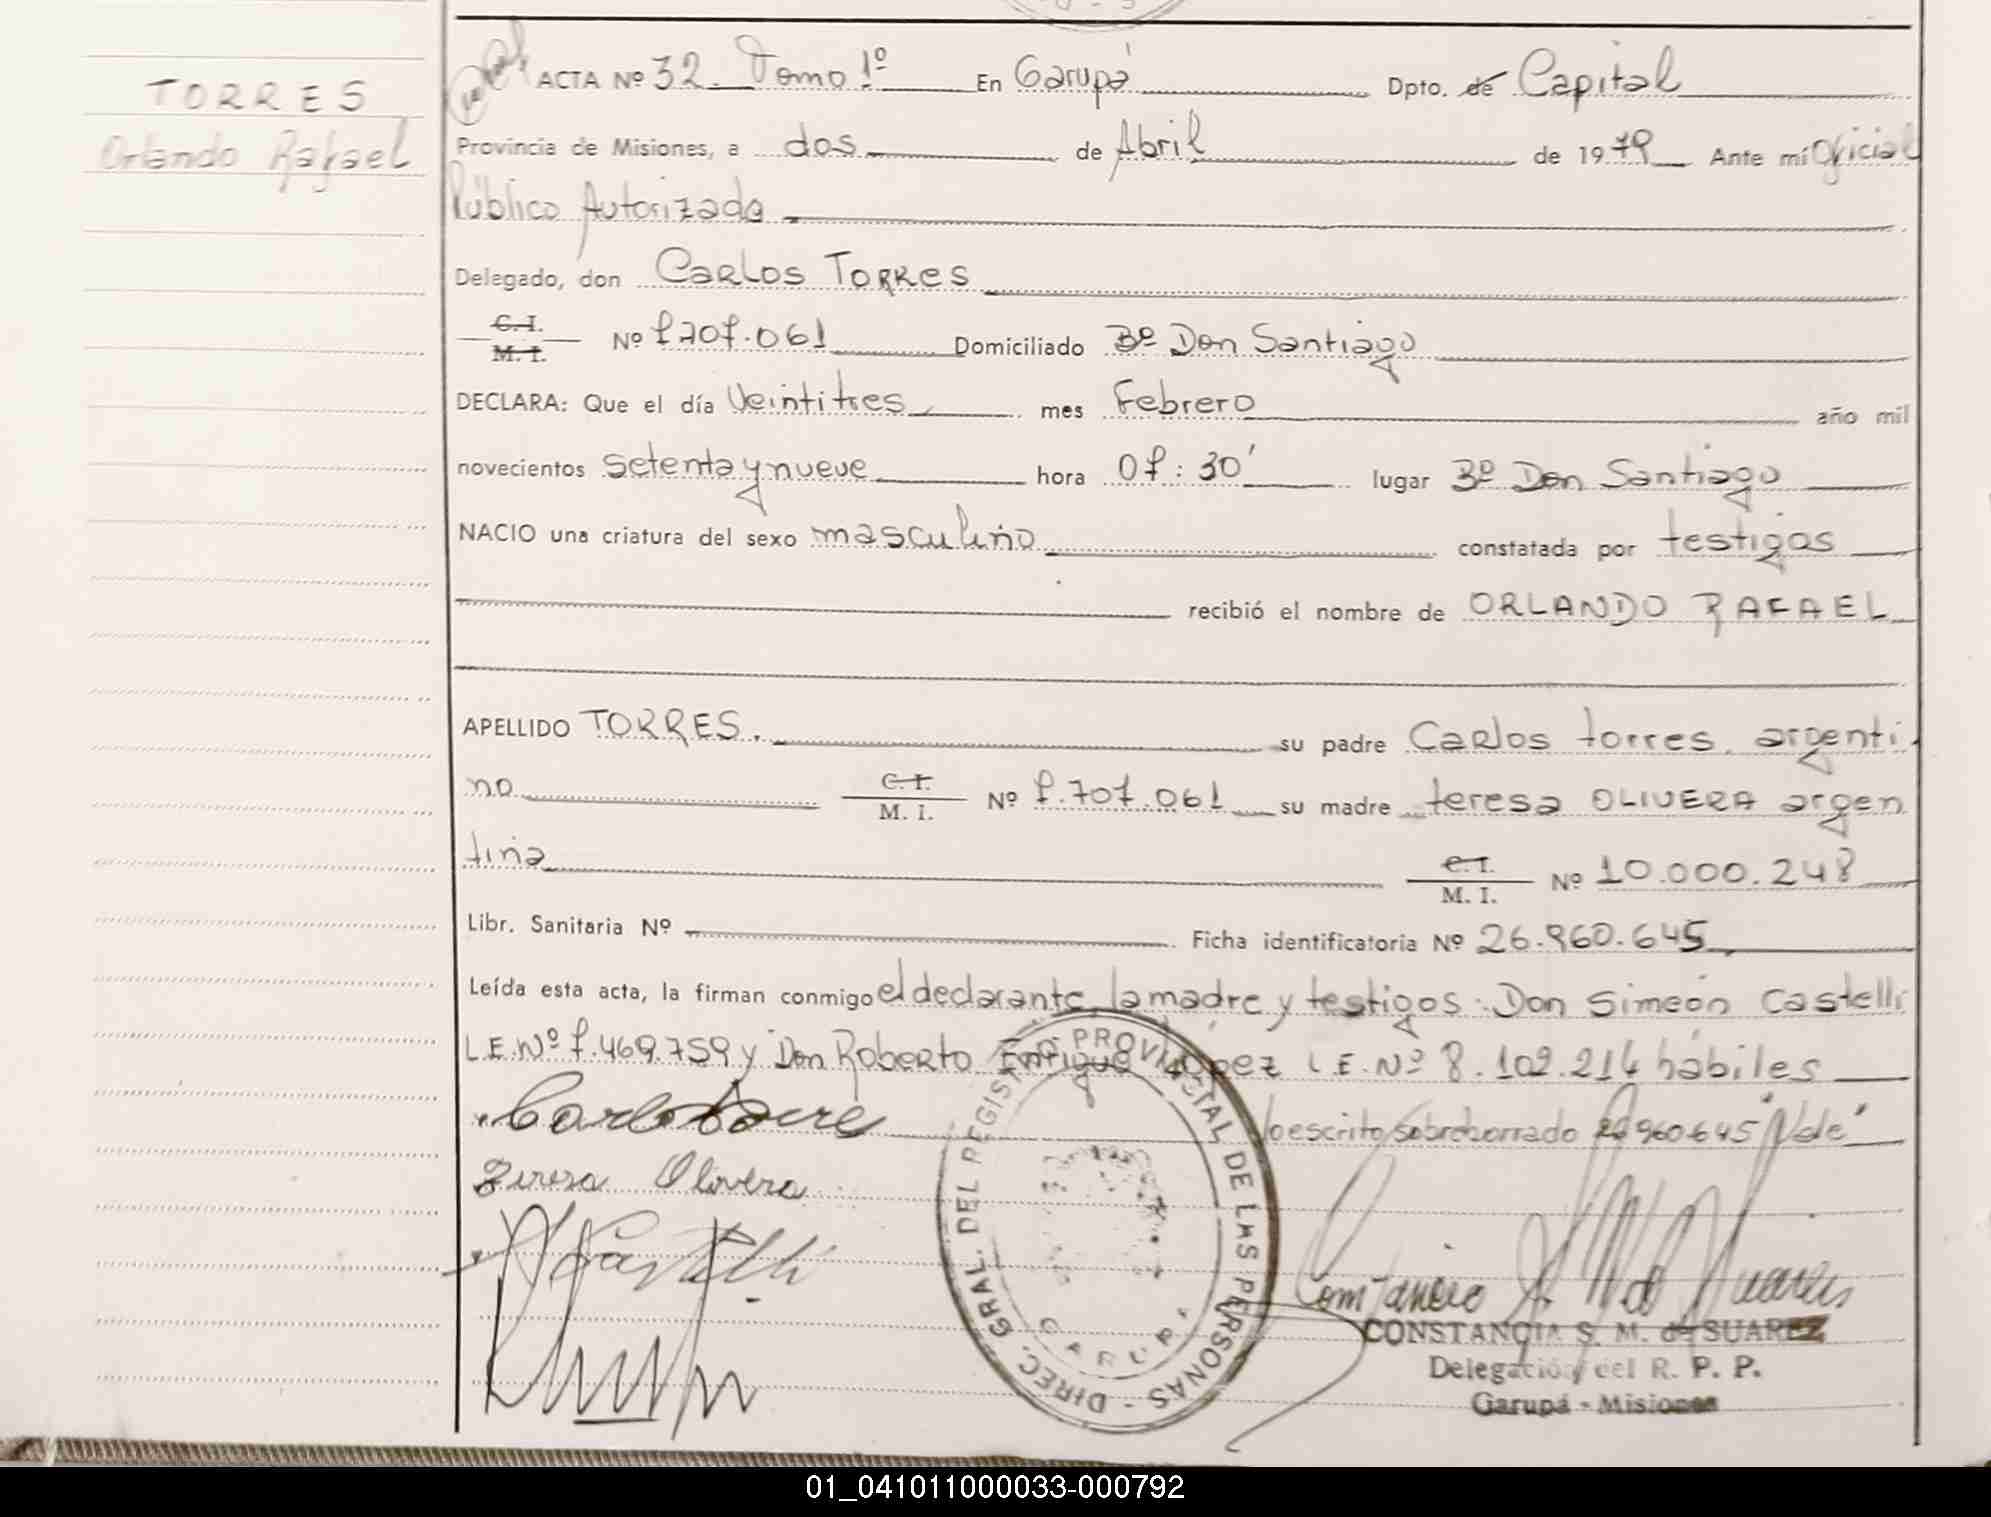 TORRES
Orlando Rafael
ACTA Nº 32. Tomo 1º En Garupá Dpto. de Capital
Provincia de Misiones, a dos de Abril de 1979 Ante mí Oficial
Público Autorizada
Delegado, don Carlos Torres
C. I.
M. I.
Nº 7.707.061 Domiciliado Bº Don Santiago
DECLARA: Que el día Veintitres mes Febrero año mil
novecientos setenta y nueve hora 07:30' lugar Bº Don Santiago
NACIO una criatura del sexo masculino constatada por testigos
recibió el nombre de ORLANDO RAFAEL
APELLIDO TORRES. su padre Carlos torres. argenti
no C. I. / M. I. Nº 7.707.061 su madre teresa OLIVERA argen
tina C. I. / M. I. Nº 10.000.248
Libr. Sanitaria Nº Ficha identificatoria Nº 26.960.645
Leída esta acta, la firman conmigo el declarante, la madre y testigos: Don Simeón Castelli
L.E. Nº 7.469.759 y Don Roberto Enrique López L.E. Nº 8.102.214 hábiles
Lo escrito s/borrado 26.960.645 "Vale"
Teresa Olivera
DIREC. GRAL. DEL REGISTRO PROVINCIAL DE LAS PERSONAS -
GARUPA
CONSTANCIA S. M. de SUAREZ
Delegación del R. P. P.
Garupá - Misiones
01_041011000033-000792